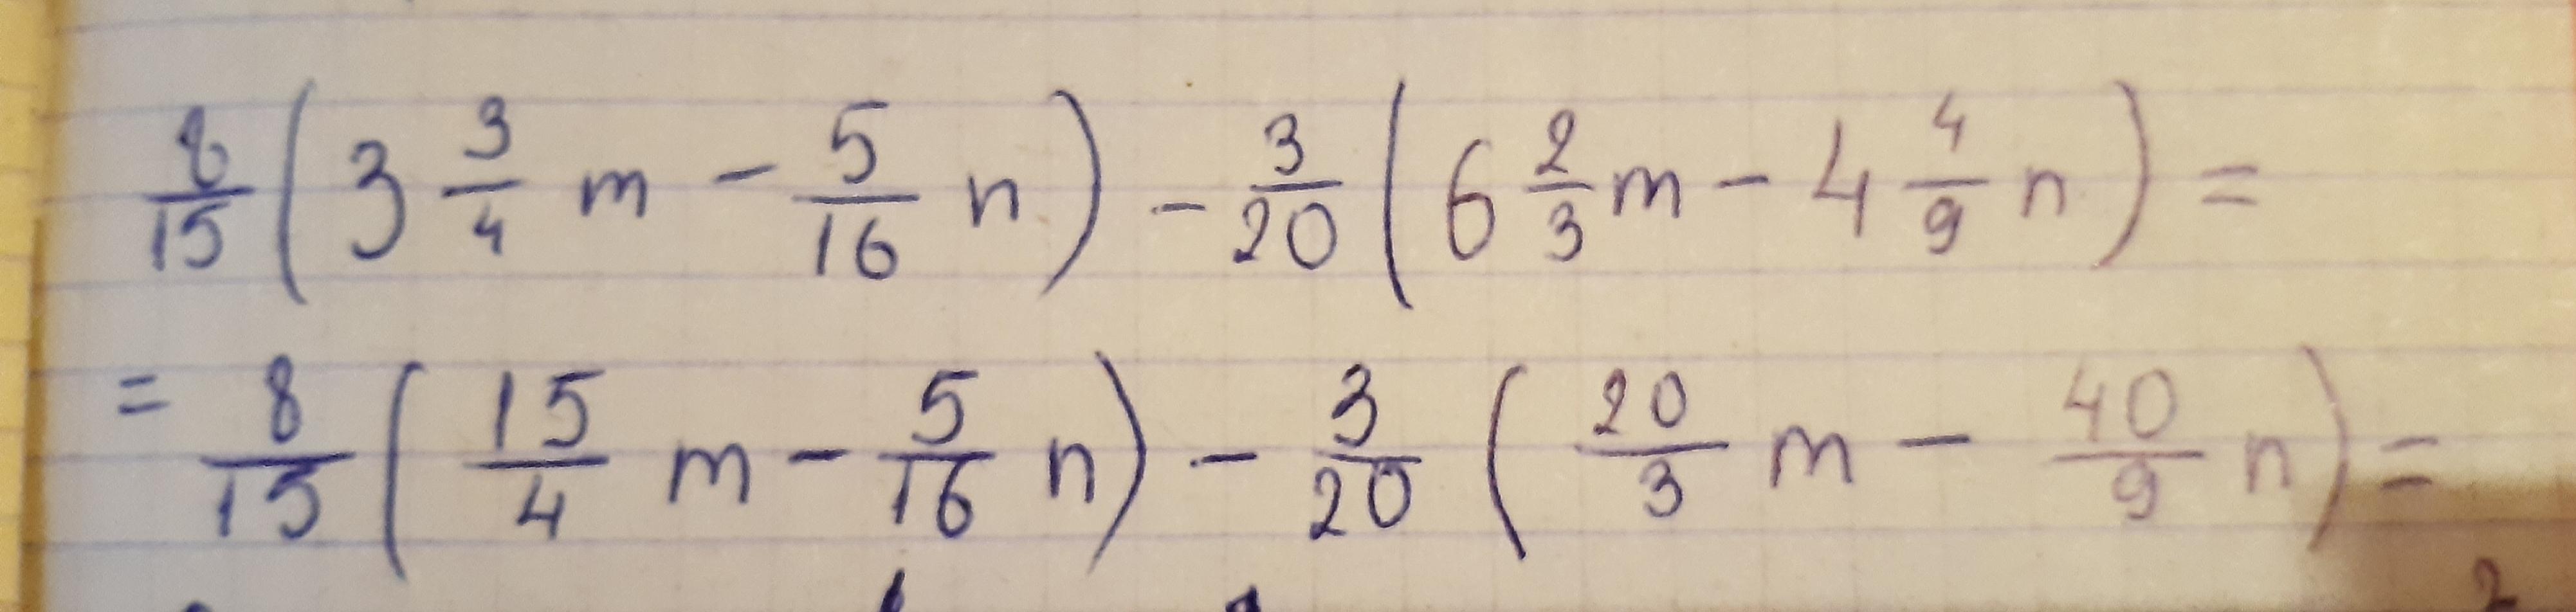 8/15 ( 3 3/4 m - 5/16 n ) - 3/20 ( 6 2/3 m - 4 4/9 n ) =
= 8/15 ( 15/4 m - 5/16 n ) - 3/20 ( 20/3 m - 40/9 n ) =